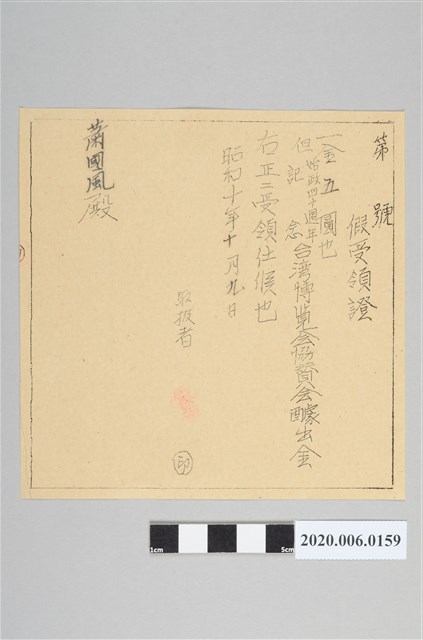 第　　號
假受領證
一金五圓也
但始政四十週年記念台湾博覧会協賛会醵出金
右正ニ受領仕候也
昭和十年十月九日
取扱者
印
蕭國風殿
1cm
5cm
2020.006.0159